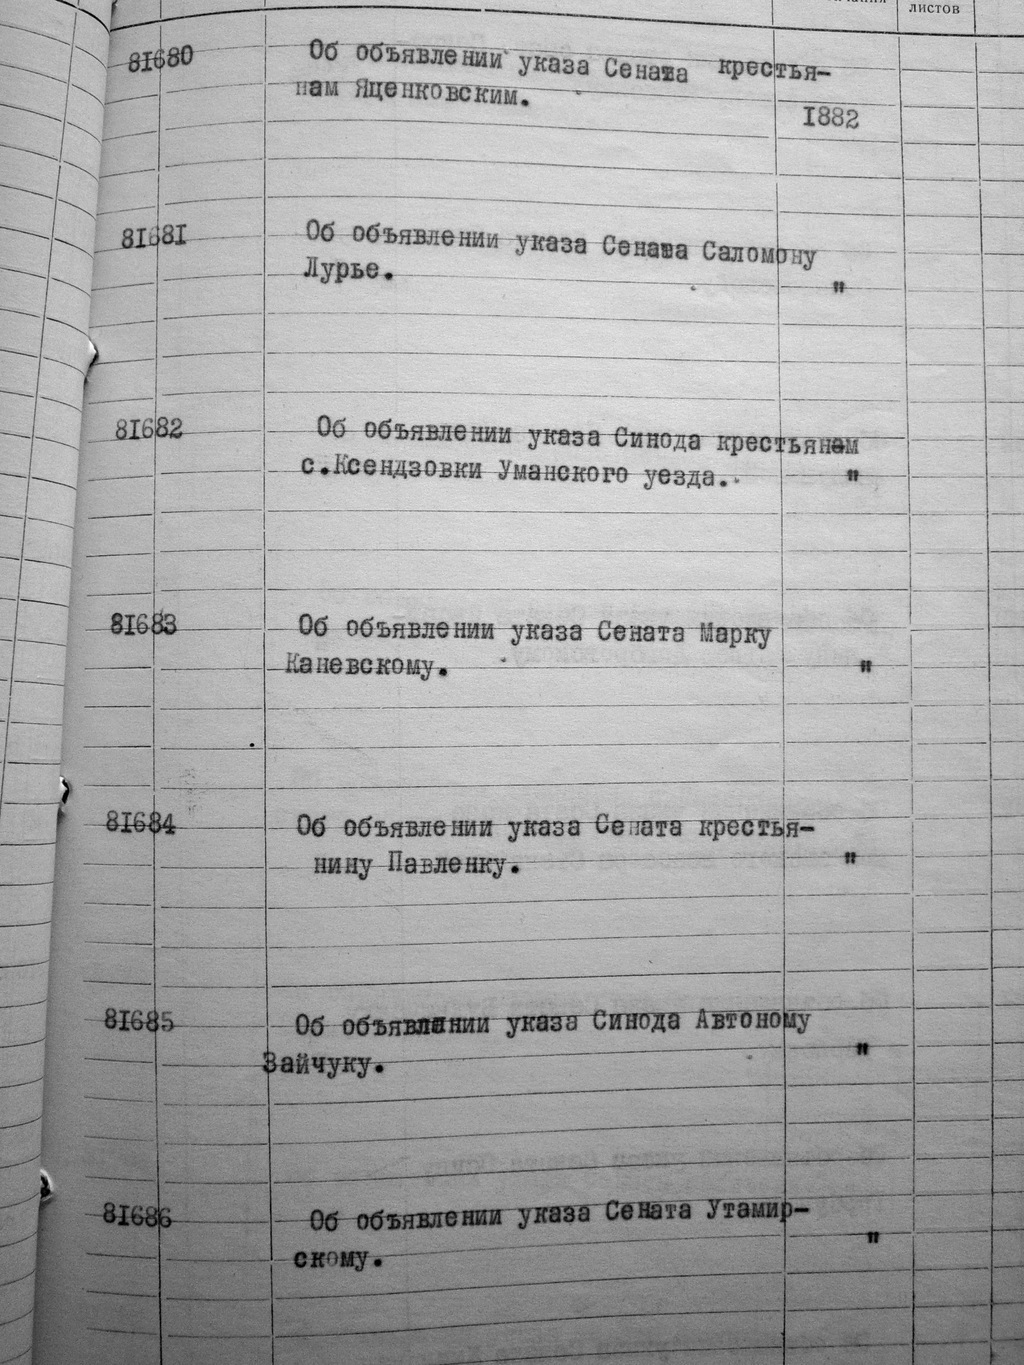 листов
81680 Об объявлении указа Сената крестья-
нам Яценковским.
1882
81681 Об объявлении указа Сената Саломону
Лурье. "
81682 Об объявлении указа Синода крестьянам
с.Ксендзовки Уманского уезда. "
81683 Об объявлении указа Сената Марку
Каневскому. "
81684 Об объявлении указа Сената крестья-
нину Павленку. "
81685 Об объявлении указа Синода Автоному
Зайчуку. "
81686 Об объявлении указа Сената Утамир-
скому. "